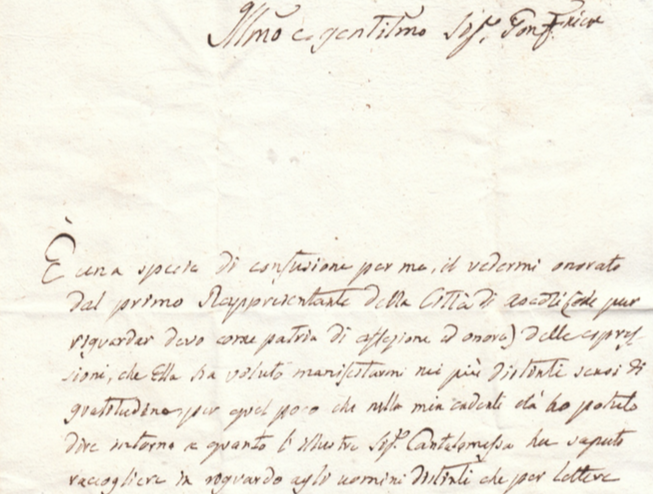 Illmo e gentilmo Sigr. Gonfre
È una specie di confusione per me, il vedermi onorato
dal primo Rappresentante della Città di Ascoli (che pur
riguardar devo come patria di affezione ed onore) delle espres-
sioni, che Ella ha voluto manifestarmi nei più distinti sensi di
gratitudine per quel poco che nella mia cadente età ho potuto
dire intorno a quanto l'illustre Sigr. Cantalamessa ha saputo
raccogliere in riguardo agli uomini distinti che per lettere